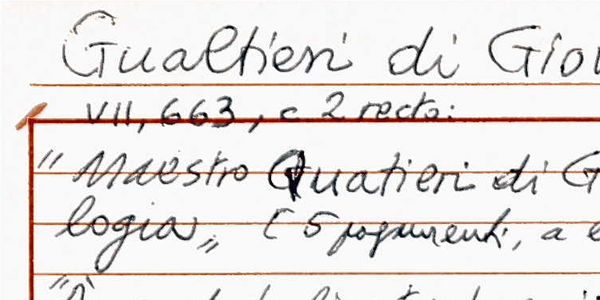 Gualtieri di Giov
VII, 663, c 2 recto:
" Maestro Quatieri di G
logia" ( 5 pagamenti, a